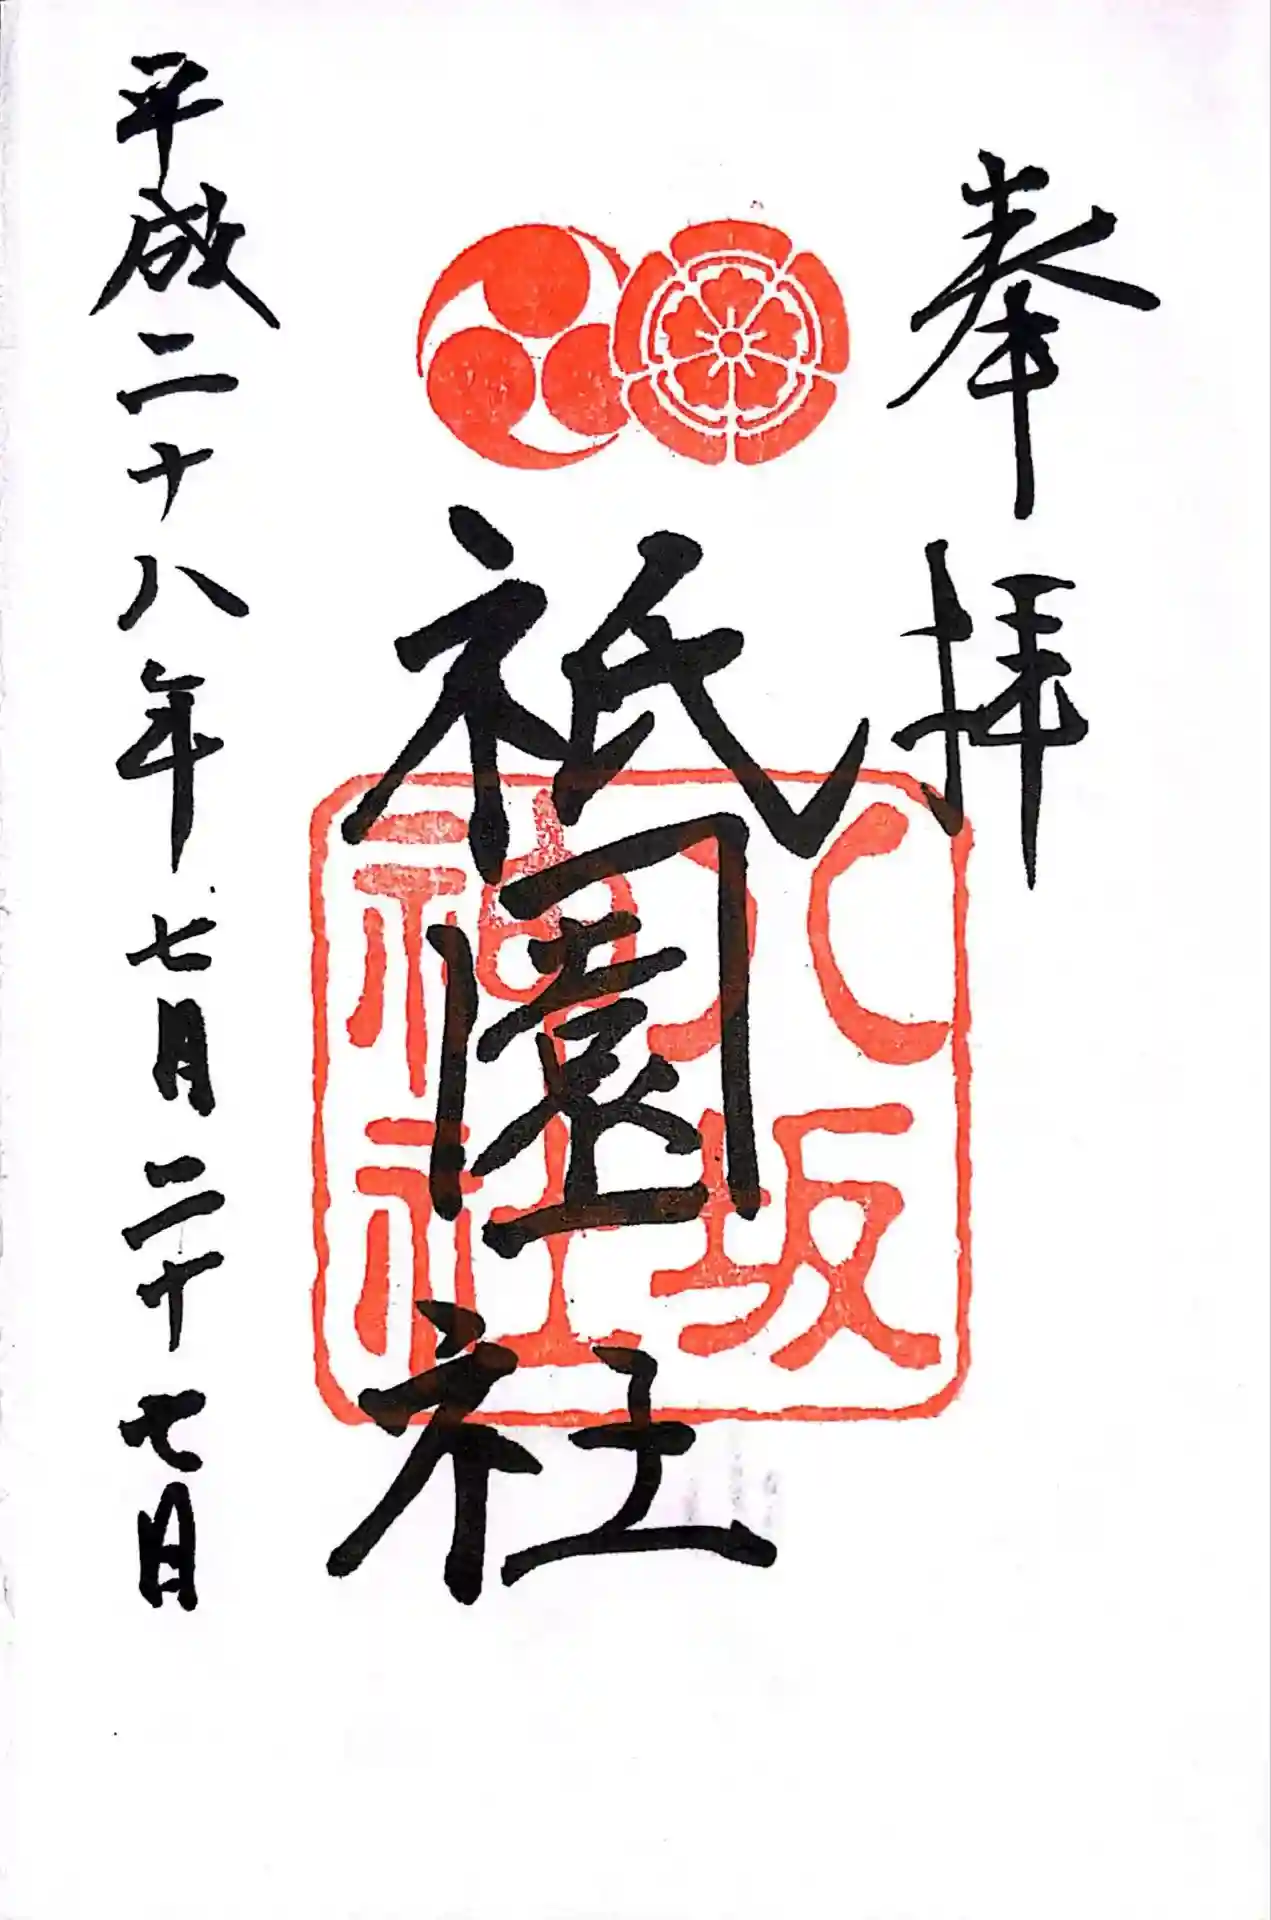 奉拝
祇園社
八坂
神社
平成二十八年七月二十七日